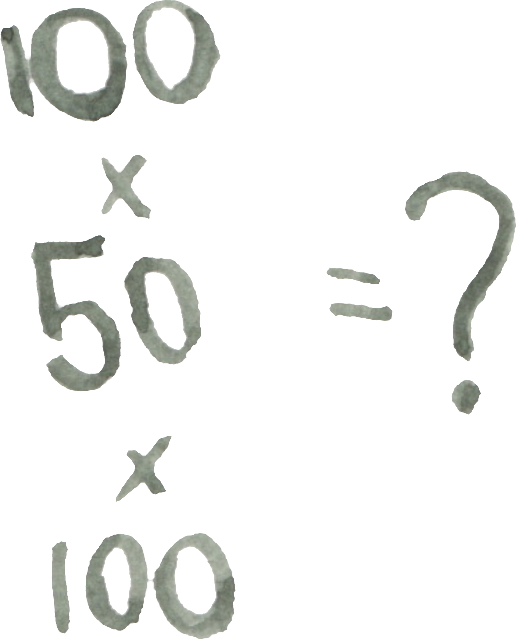 100
×
50
= ?
×
100